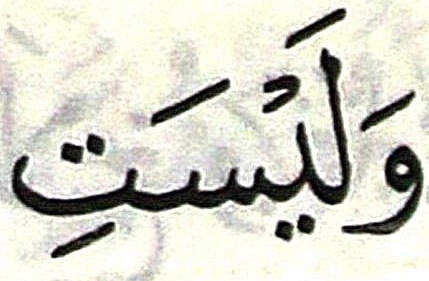 وَلَيْسَتِ